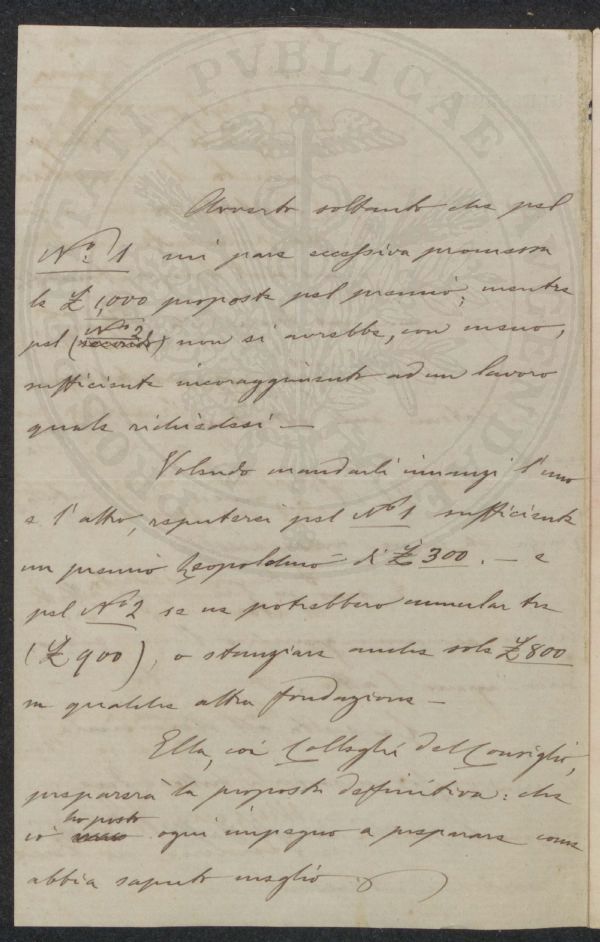 PROSPERITATI PVBLICAE AVGENDAE
Avverto soltanto che pel
Nº. 1 mi pare eccessiva promessa
le £ 1,000 proposte pel premio; mentre
Nº 2
pel (secondo) non si avrebbe, con meno,
sufficiente incoraggiamento ad un lavoro
quale richiedesi —
Volendo mandarli innanzi l'uno
e l'altro, reputerei pel Nº 1 sufficiente
un premio Leopoldino di £ 300. — e
pel Nº 2 se ne potrebbero cumular tre
(£ 900), o stanziare anche sole £ 800
su qualche altra fondazione —
Ella, coi Colleghi del Consiglio,
preparerà la proposta deffinitiva: che
ho posto
io ogni impegno a preparare come
abbia saputo meglio